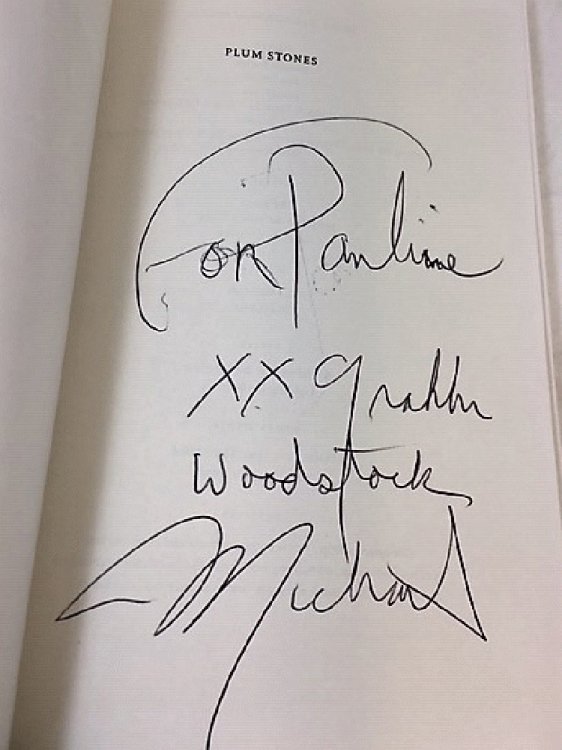 PLUM STONES
For Pauline
XX
Woodstock
Michael